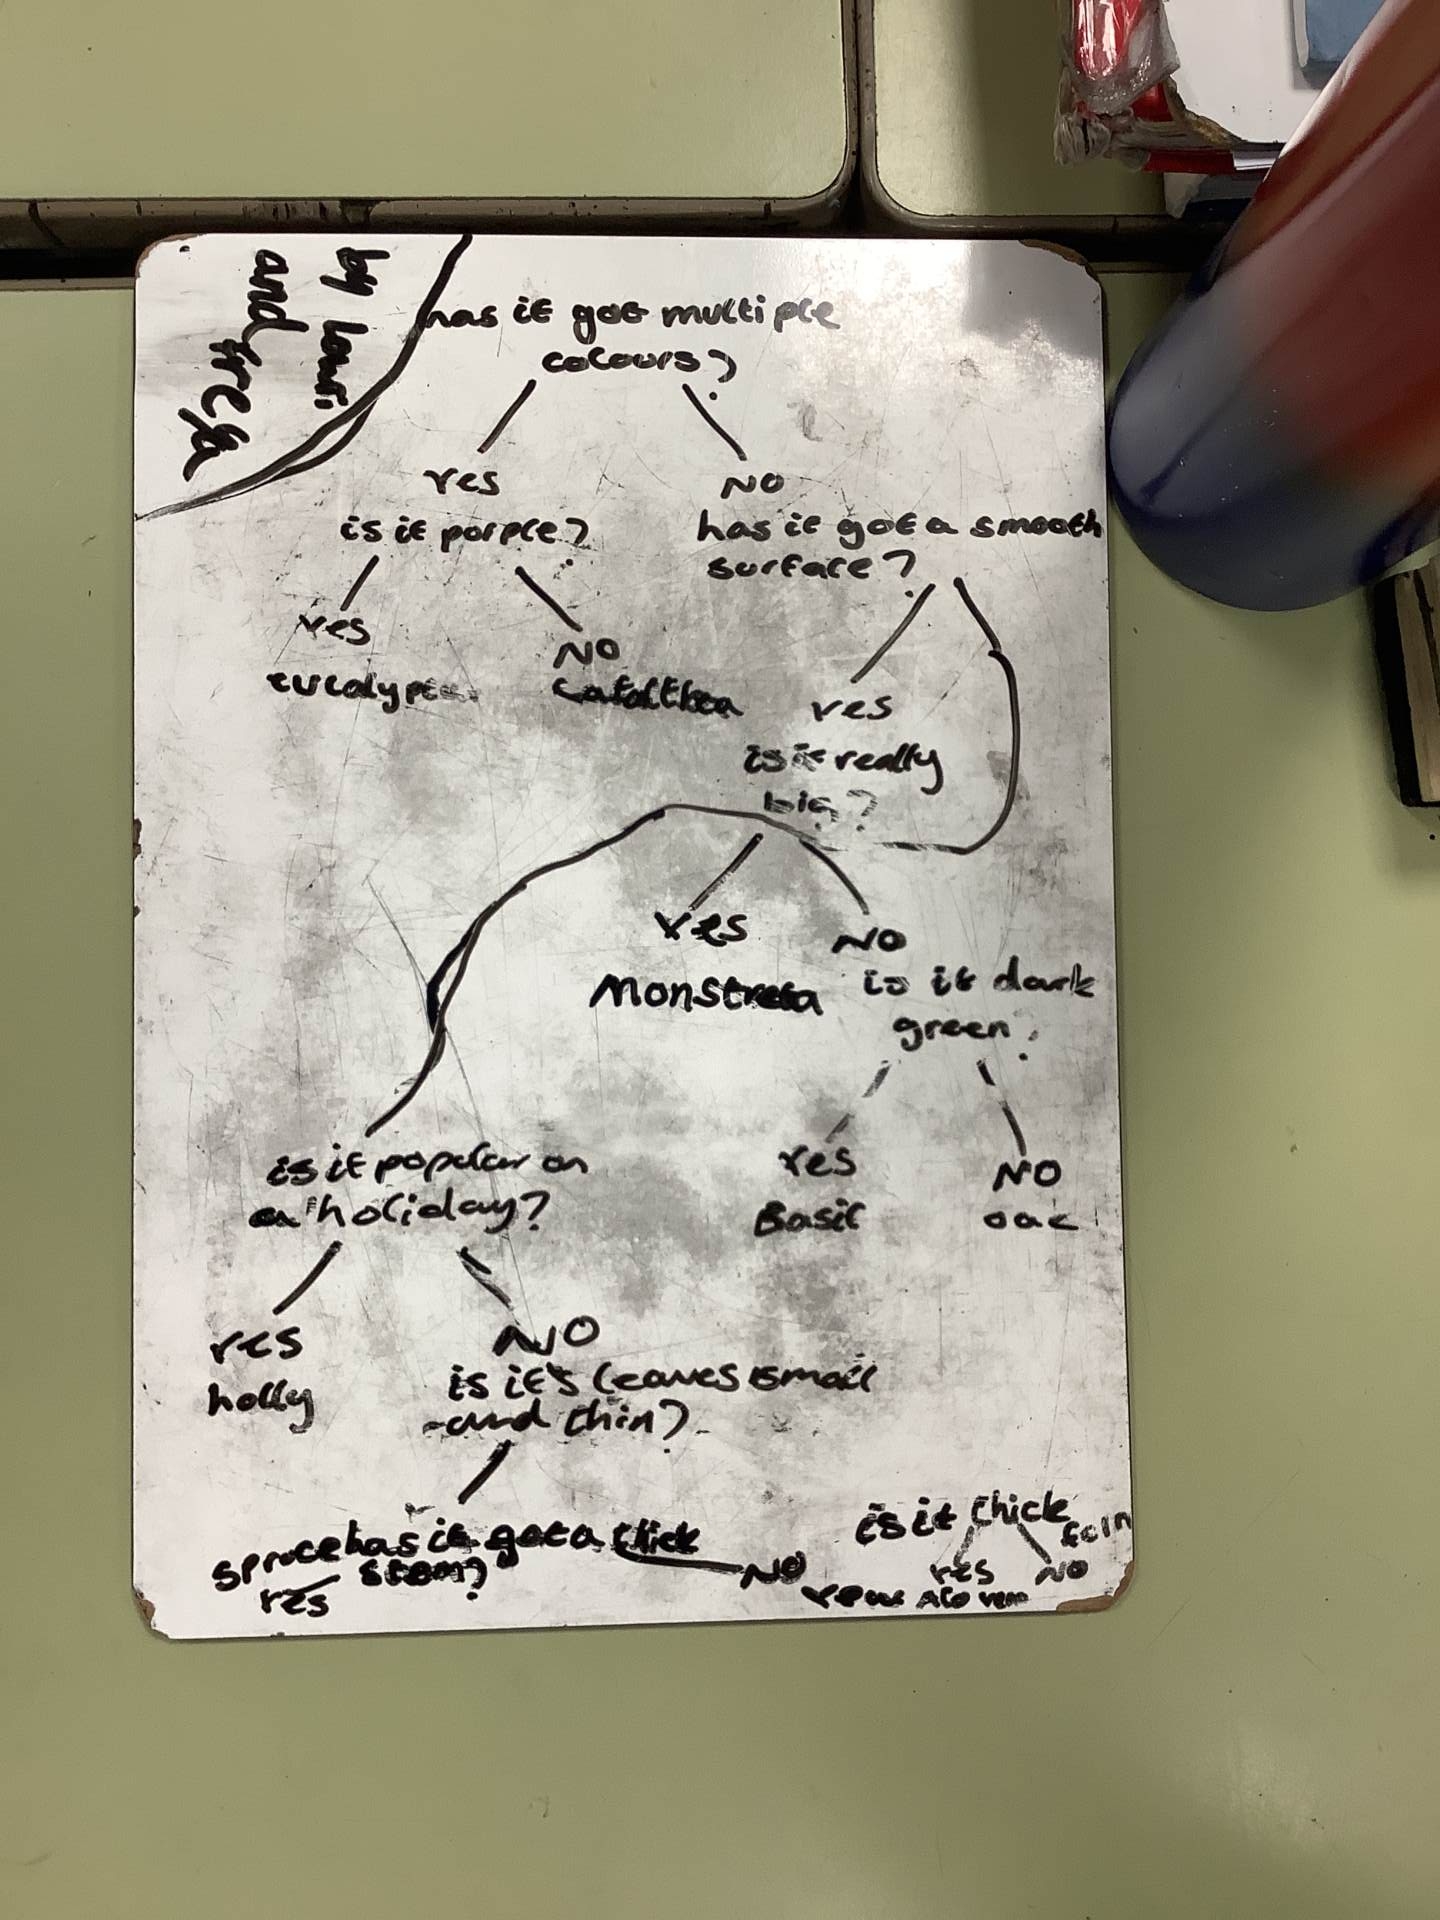 by
and freya
has it got multiple
colours?
Yes
NO
is it porple?
has it got a smooth
surface?
yes
NO
eucalyptu
Calathea
yes
is it really
big?
Yes
NO
Monstrera
is it dark
green?
is it popular on
a holiday?
Yes
NO
Basil
oac
yes
NO
holly
is it's leaves small
and thin?
spruce has it got a thick
stem?
yes
NO
is it thick
yes
NO
Alo vera